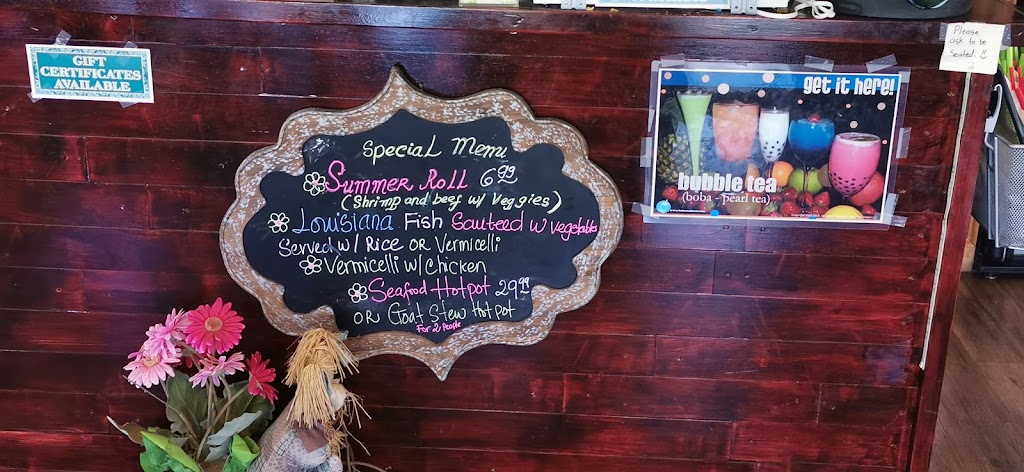 GIFT
CERTIFICATES
AVAILABLE
Special Menu
Summer Roll 6.99
(Shrimp and beef w/ Veggies)
Louisiana Fish Sauteed w vegetables
Served w/ Rice OR Vermicelli
Vermicelli w/ chicken
Seafood Hotpot 29.99
OR Goat Stew Hotpot
For 2 People
get it here!
bubble tea
(boba - pearl tea)
Please
ask to be
Seated.